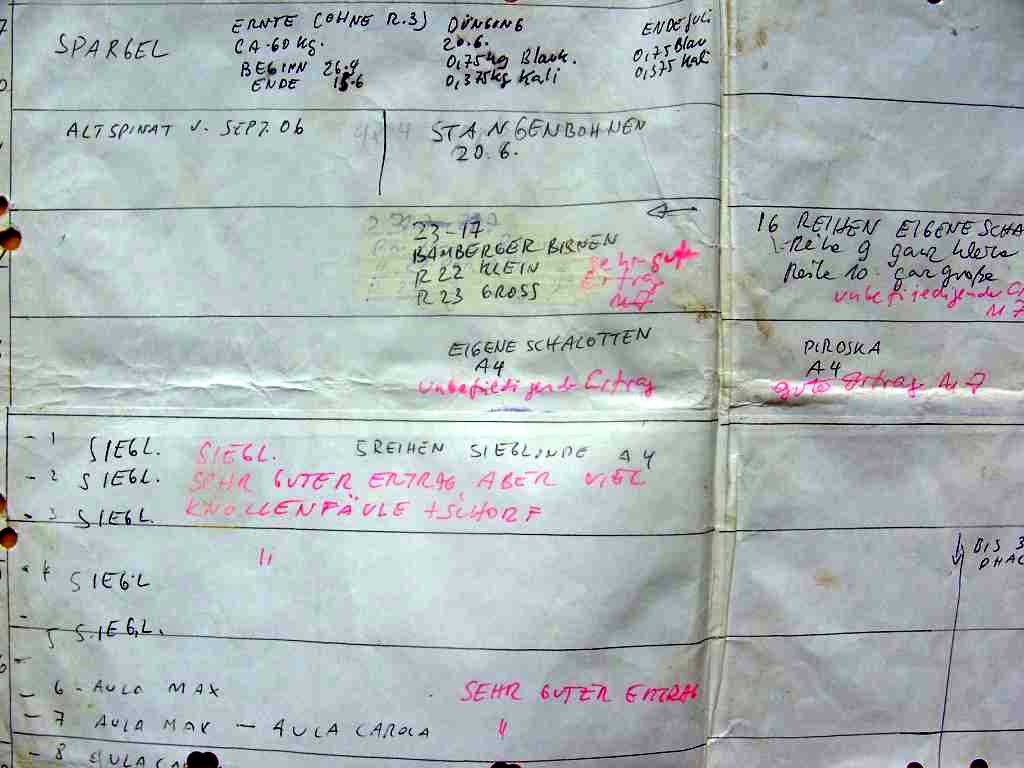 SPARGEL
ERNTE (OHNE R.3)
CA. 60 kg.
BEGINN 26.4
ENDE 15.6
DÜNGUNG
20.6.
0,75kg Blauk.
0,375kg Kali
ENDE Juli
0,75 Blau
0,375 Kali
ALTSPINAT V. SEPT. 06
STANGENBOHNEN
20.6.
23-17
BAMBERGER BIRNEN
R 22 KLEIN
R 23 GROSS
Sehr gute
Ertrag
16 REIHEN EIGENE SCHA
Reihe 9 ganz kleine
Reihe 10 ganz große
unbefriedigender
EIGENE SCHALOTTEN
A4
Unbefriedigende Ertrag
PIROSKA
A4
gute Ertrag
- 1 SIEGL. SIEGL. 5 REIHEN SIEGLINDE A4
- 2 SIEGL. SEHR GUTER ERTRAG, ABER VIEL
- 3 SIEGL. KNOLLENFÄULE + SCHORF
"
BIS 3
SIEGL
5 SIEGL.
- 6 - AULA MAX SEHR GUTER ERTRAG
- 7 AULA MAX — AULA CAROLA "
- 8 AULA CA